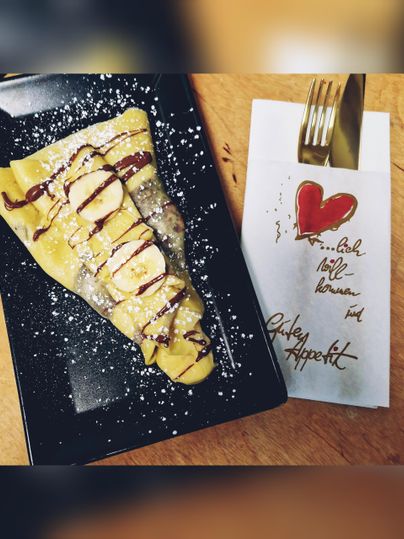 ...lich
will-
kommen
und
Guten
Appetit